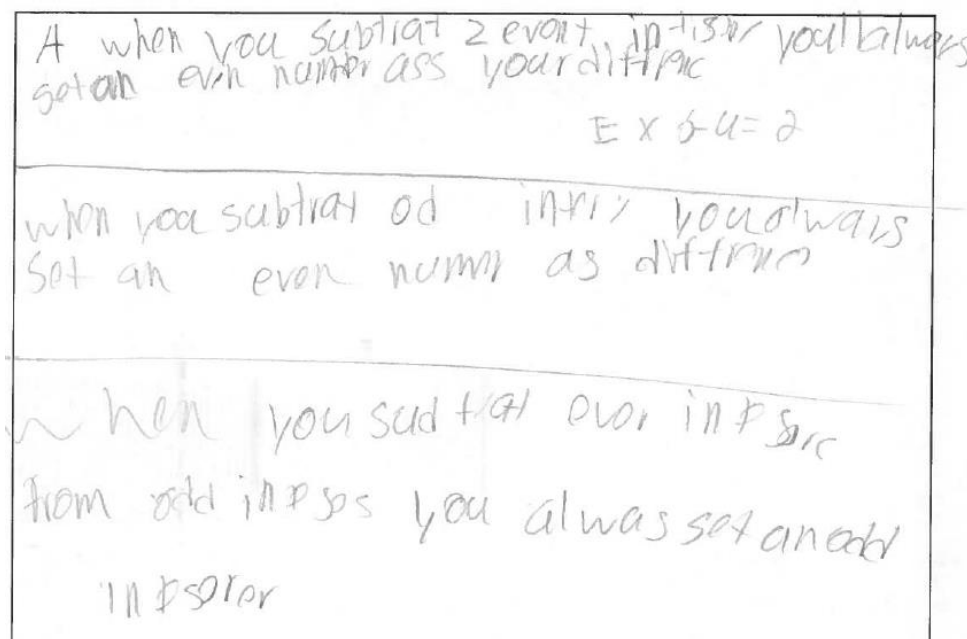 A when you subtrat 2 event intisr youll always
get an even numbr ass your diffrnc
Ex 6-4=2
when you subtrat od intrir you always
get an even numr as diffrnc
when you sudtat evor intsrc
from odd intses you alwas get an odd
intsorer